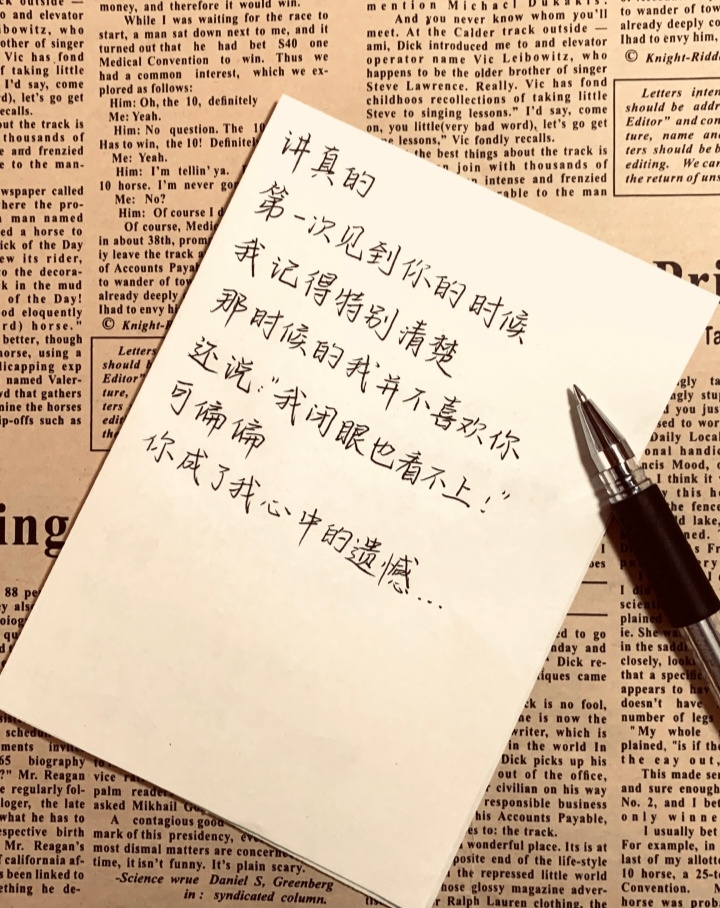 讲真的
第一次见到你的时候
我记得特别清楚
那时候的我并不喜欢你
还说:"我闭眼也看不上!"
可偏偏
你成了我心中的遗憾...
ck outside —
o and elevator
ibowitz, who
other of singer
Vic has fond
f taking little
I'd say, come
rd), let's go get
recalls.
out the track is
thousands of
e and frenzied
e to the man-
wspaper called
here the pro-
a man named
ed a horse to
ick of the Day
ew its rider,
o the decora-
k in the mud
of the Day!
od eloquently
rd) horse."
better, though
horse, using a
licapping exp
named Valer-
vd that gathers
mine the horses
ip-offs such as
ing
money, and therefore it would win.
While I was waiting for the race to
start, a man sat down next to me, and it
turned out that he had bet $40 one
Medical Convention to win. Thus we
had a common interest, which we ex-
plored as follows:
Him: Oh, the 10, definitely
Me: Yeah.
Him: No question. The 10
Has to win, the 10! Definitel
Me: Yeah.
Him: I'm tellin' ya.
10 horse. I'm never go
Me: No?
Him: Of course I d
Of course, Medi
in about 38th, prom
iy leave the track a
of Accounts Paya
to wander of tow
already deeply
Ihad to envy hi
© Knight-R
Letters
should b
Editor"
ture,
ters
edit
the
mention Michael Dukakis.
And you never know whom you'll
meet. At the Calder track outside —
ami, Dick introduced me to and elevator
operator name Vic Leibowitz, who
happens to be the older brother of singer
Steve Lawrence. Really. Vic has fond
childhoos recollections of taking little
Steve to singing lessons." I'd say, come
on, you little(very bad word), let's go get
e lessons," Vic fondly recalls.
the best things about the track is
join with thousands of
intense and frenzied
rable to the man
to wander of tow
already deeply co
Ihad to envy him,
© Knight-Ridd
Letters inten
should be addr
Editor" and con
ture, name an
ters should be b
editing. We can
the return of uns
Pri
Ta
88 pe
scheduled
ments invit
65 biography
?" Mr. Reagan
e regularly fol-
loger, the late
what he has to
espective birth
Mr. Reagan's
f californaia af-
been linked to
ething he de-
vice
palm reader
asked Mikhail Go
A contagious good
mark of this presidency, eve
most dismal matters are concerne
time, it isn't funny. It's plain scary.
-Science wrue Daniel S, Greenberg
in : syndicated column.
ed to go
nday and
Dick re-
iques came
ck is no fool,
he is now the
writer, which is
in the world In
Dick picks up his
out of the office,
civilian on his way
responsible business
his Accounts Payable,
es to: the track.
wonderful place. Its is at
posite end of the life-style
the repressed little world
hose glossy magazine adver-
Ralph Lauren clothing, the
plained
ie. She
in the sadd
closely, look
that a specifi
appears to hav
doesn't have
number of legs
"My whole
plained, "is if the
the eay out,
This made sen
and sure enough
No. 2, and I bet
only winne
I usually bet
For example, in
last of my allott
10 horse, a 25-t
Convention. M
horse was prob